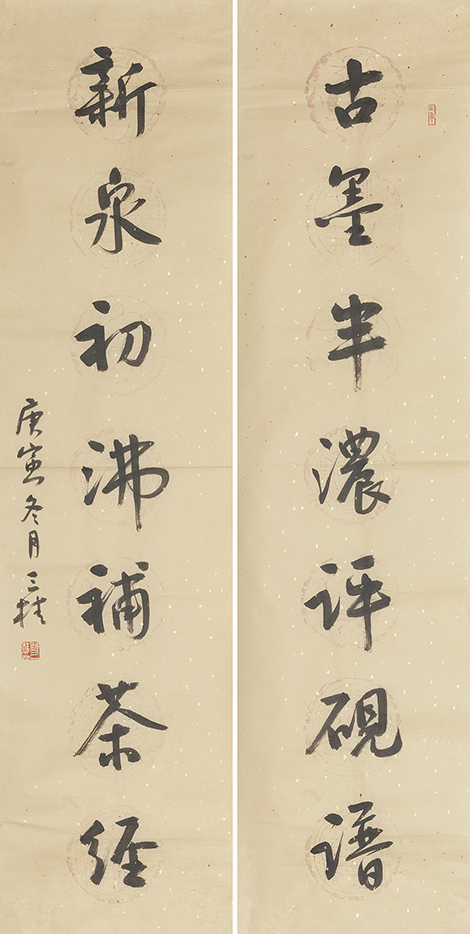 古墨半濃評硯譜
新泉初沸補茶經
庚寅冬月三